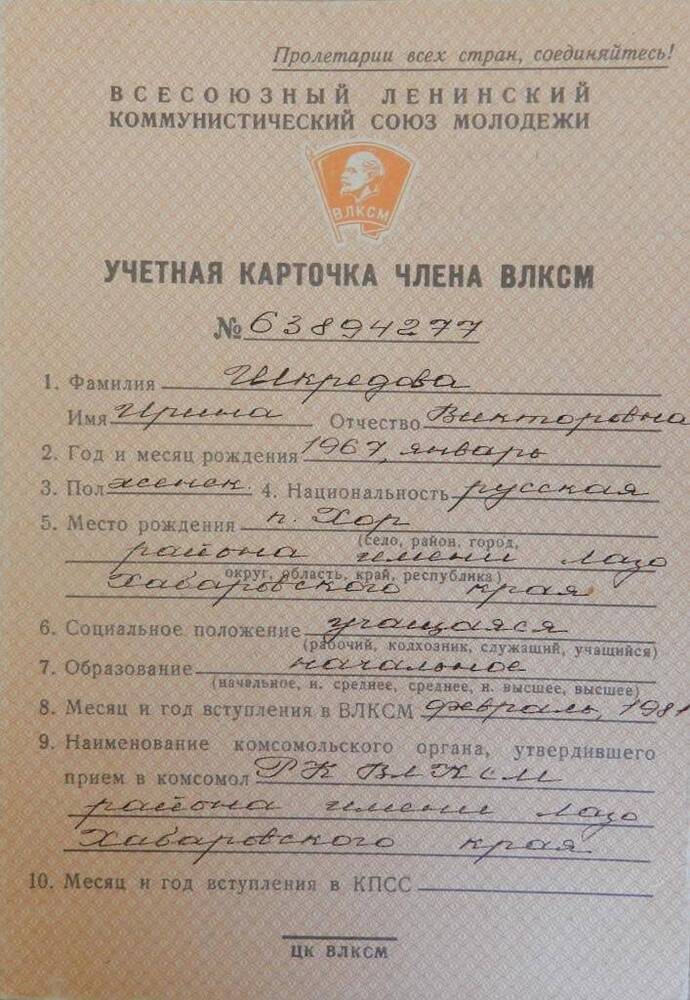 Пролетарии всех стран, соединяйтесь!
ВСЕСОЮЗНЫЙ ЛЕНИНСКИЙ
КОММУНИСТИЧЕСКИЙ СОЮЗ МОЛОДЕЖИ
ВЛКСМ
УЧЕТНАЯ КАРТОЧКА ЧЛЕНА ВЛКСМ
№ 63894277
1. Фамилия Шкредова
Имя Ирина Отчество Викторовна
2. Год и месяц рождения 1967, январь
3. Пол женск. 4. Национальность русская
5. Место рождения п. Хор
(село, район, город,
района имени Лазо
округ, область, край, республика)
Хабаровского края
6. Социальное положение учащаяся
(рабочий, колхозник, служащий, учащийся)
7. Образование начальное
(начальное, н. среднее, среднее, н. высшее, высшее)
8. Месяц и год вступления в ВЛКСМ февраль, 1981
9. Наименование комсомольского органа, утвердившего
прием в комсомол РК ВЛКСМ
района имени Лазо
Хабаровского края
10. Месяц и год вступления в КПСС
ЦК ВЛКСМ